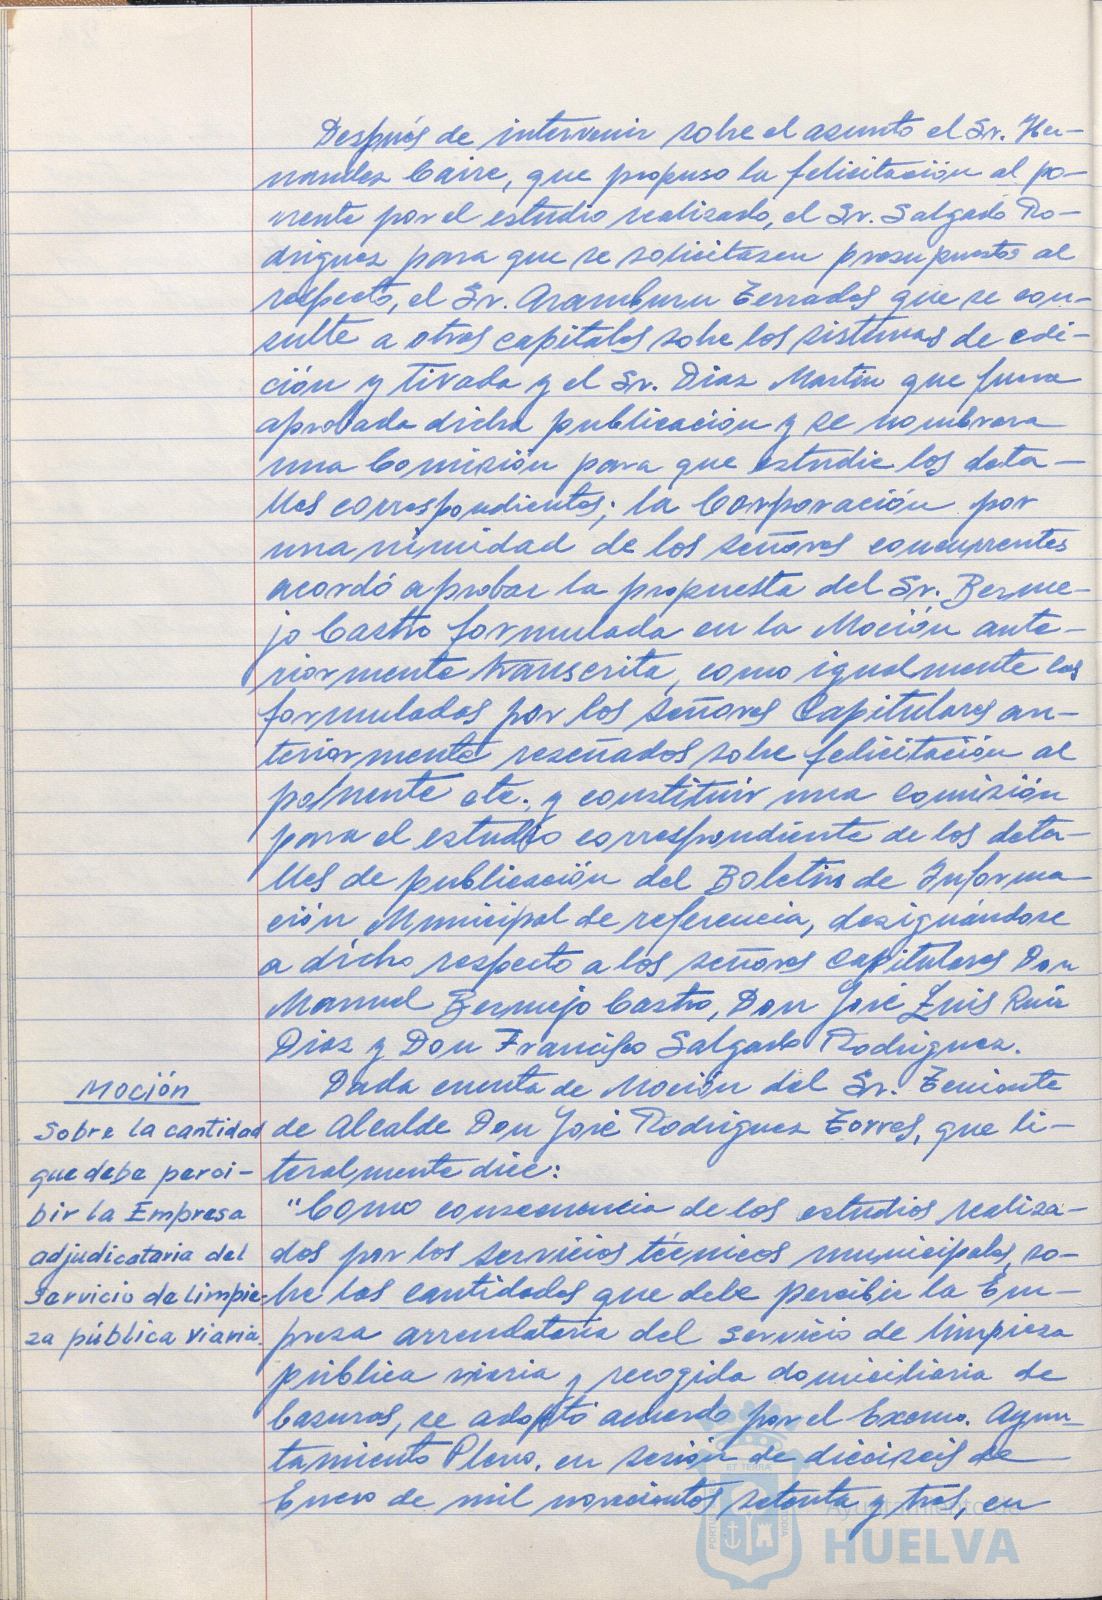 Después de intervenir sobre el asunto el Sr. Her-
nandez Caire, que propuso la felicitación al po-
nente por el estudio realizado, el Sr. Salgado Ro-
driguez para que se solicitasen presupuestos al
respecto, el Sr. Aramburu Terrades que se con-
sulte a otras capitales sobre los sistemas de edi-
ción y tirada y el Sr. Diaz Martin que fuera
aprobada dicha publicación y se nombrara
una Comisión para que estudie los deta-
lles correspondientes; la Corporación por
unanimidad de los señores concurrentes
acordó aprobar la propuesta del Sr. Berme-
jo Castro formulada en la Moción ante-
riormente transcrita, como igualmente las
formuladas por los señores Capitulares an-
teriormente reseñados sobre felicitación al
ponente etc. y constituir una comisión
para el estudio correspondiente de los deta-
lles de publicación del Boletin de Informa-
ción Municipal de referencia, designándose
a dicho respecto a los señores Capitulares Don
Manuel Bermejo Castro, Don José Luis Ruiz
Diaz y Don Francisco Salgado Rodriguez.
Moción
Sobre la cantidad
que debe perci-
bir la Empresa
adjudicataria del
Servicio de limpie-
za pública viaria
Dada cuenta de Moción del Sr. Teniente
de Alcalde Don José Rodriguez Torres, que li-
teralmente dice:
"Como consecuencia de los estudios realiza-
dos por los servicios técnicos municipales, so-
bre las cantidades que debe percibir la Em-
presa arrendataria del servicio de limpieza
pública viaria y recogida domiciliaria de
basuras, se adoptó acuerdo por el Excmo. Ayun-
tamiento Pleno, en sesión de dieciseis de
Enero de mil novecientos setenta y tres, en
Ayuntamiento de
HUELVA